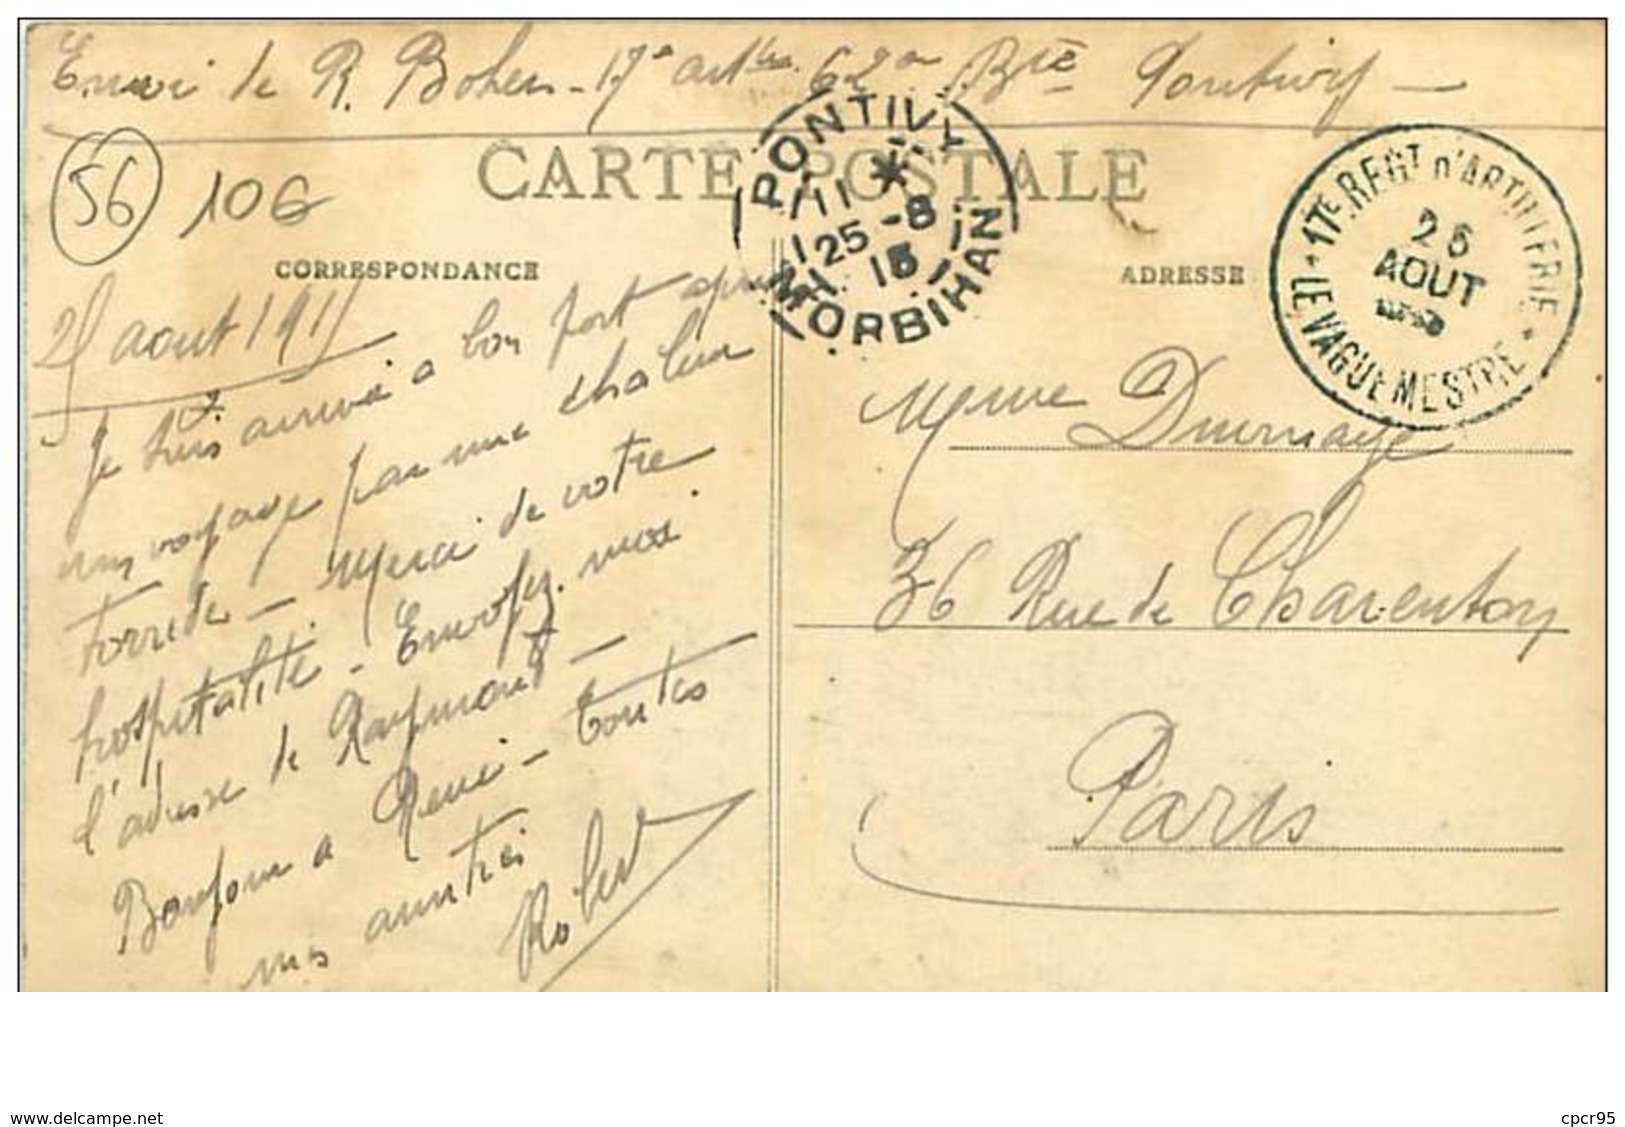 Envoi de R. Bohen - 17e artie 62e Bie Pontivy -
56 106
CARTE POSTALE
PONTIVY
11 *
25 - 8
15
MORBIHAN
17E REGT D'ARTILLERIE
26
AOUT
* LE VAGUEMESTRE *
CORRESPONDANCE
ADRESSE
25 août 1915
Je suis arrivé à bon port après
un voyage par une chaleur
torride - Merci de votre
hospitalité - Envoyez moi
l'adresse de Raymond -
Bonjour à René - toutes
mes amitiés
Robert
Mme Durmaye
36 Rue de Charenton
Paris
www.delcampe.net
cpcr95